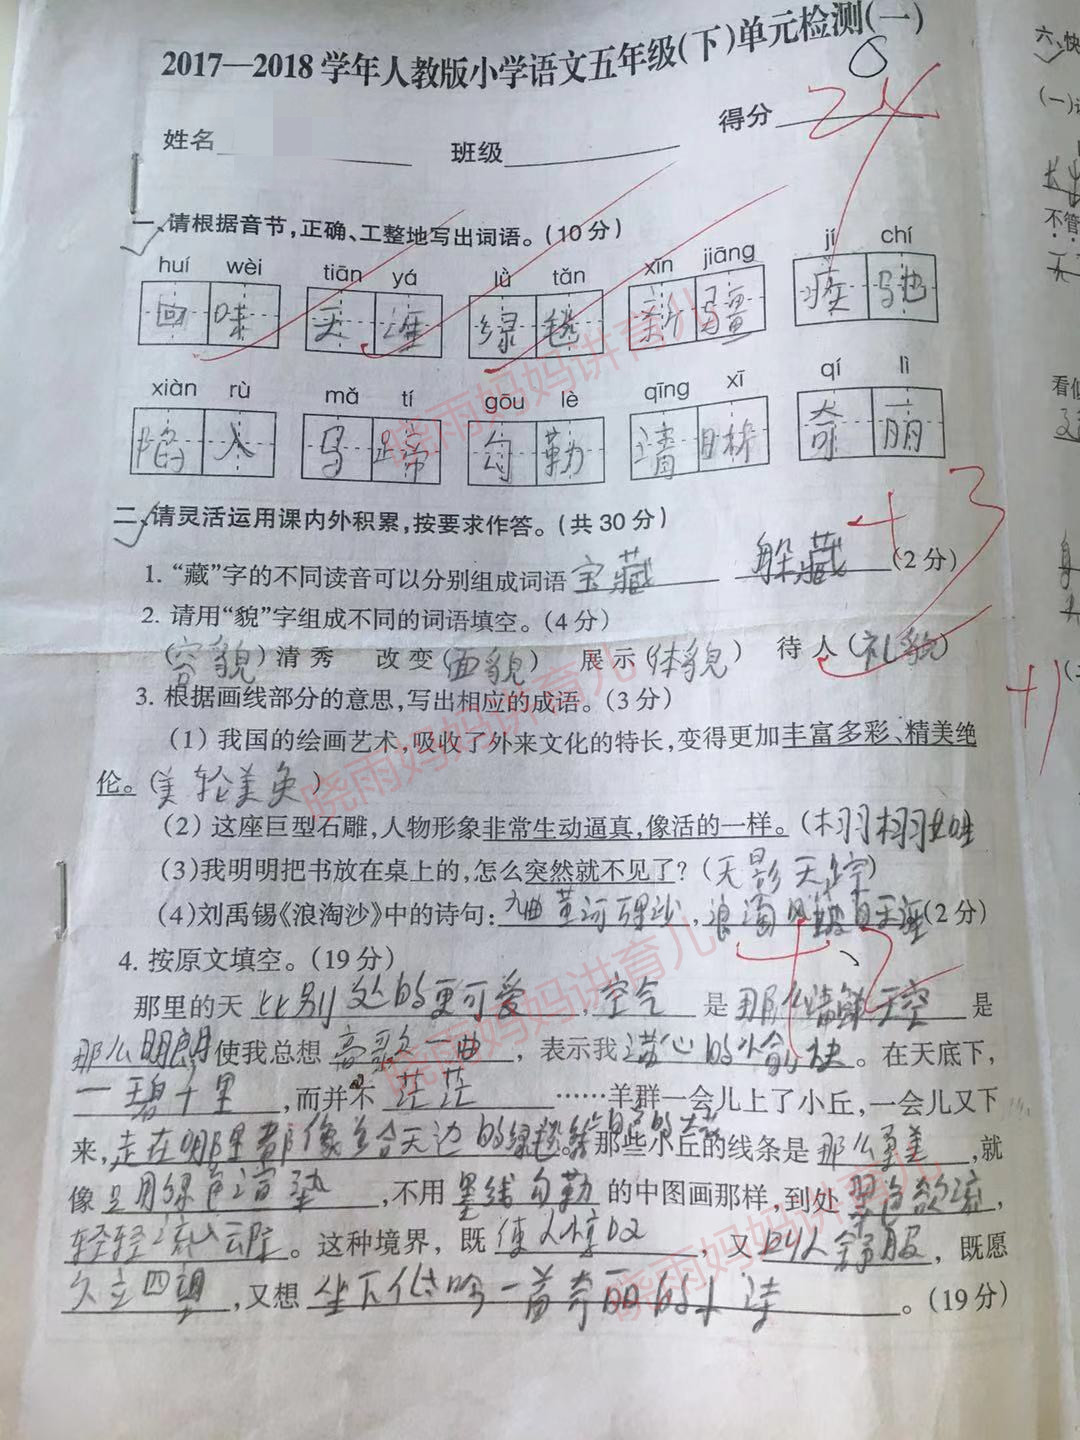 2017—2018学年人教版小学语文五年级(下)单元检测(一)
8
24
姓名 班级 得分
一、请根据音节,正确、工整地写出词语。(10分)
huí wèi tiān yá lǜ tǎn xīn jiāng jí chí
回味 天涯 绿毯 新疆 疾驰
xiàn rù mǎ tí gōu lè qīng xī qí lì
陷入 马蹄 勾勒 清晰 奇丽
二、请灵活运用课内外积累,按要求作答。(共30分)
1. “藏”字的不同读音可以分别组成词语 宝藏 躲藏 (2分)
2. 请用“貌”字组成不同的词语填空。(4分)
(容貌)清秀 改变(面貌) 展示(体貌) 待人(礼貌)
3. 根据画线部分的意思,写出相应的成语。(3分)
+1
(1) 我国的绘画艺术,吸收了外来文化的特长,变得更加丰富多彩、精美绝
伦。(美轮美奂)
(2) 这座巨型石雕,人物形象非常生动逼真,像活的一样。(栩栩如生
(3)我明明把书放在桌上的,怎么突然就不见了?(无影无踪)
(4)刘禹锡《浪淘沙》中的诗句:九曲黄河万里沙,浪淘风簸自天涯(2分)
4. 按原文填空。(19分)
那里的天 比别处的更可爱,空气 是 那么清鲜天空 是
那么明朗 使我总想 高歌一曲 ,表示我 满心的愉快。在天底下,
一碧千里 ,而并不 茫茫 ……羊群一会儿上了小丘,一会儿又下
来,走在哪里都像 天边的绿毯 那些小丘的线条是 那么柔美 ,就
像 只用绿色渲染 ,不用 墨线勾勒 的中国画那样,到处 翠色欲流,
轻轻流入云际。这种境界,既 使人惊叹 ,又 叫人舒服 ,既愿
久立四望 ,又想 坐下低吟一首奇丽的小诗 。(19分)
晓雨妈妈讲育儿
晓雨妈妈讲育儿
晓雨妈妈讲育儿
晓雨妈妈讲育儿
六、快
(一)
不管
看